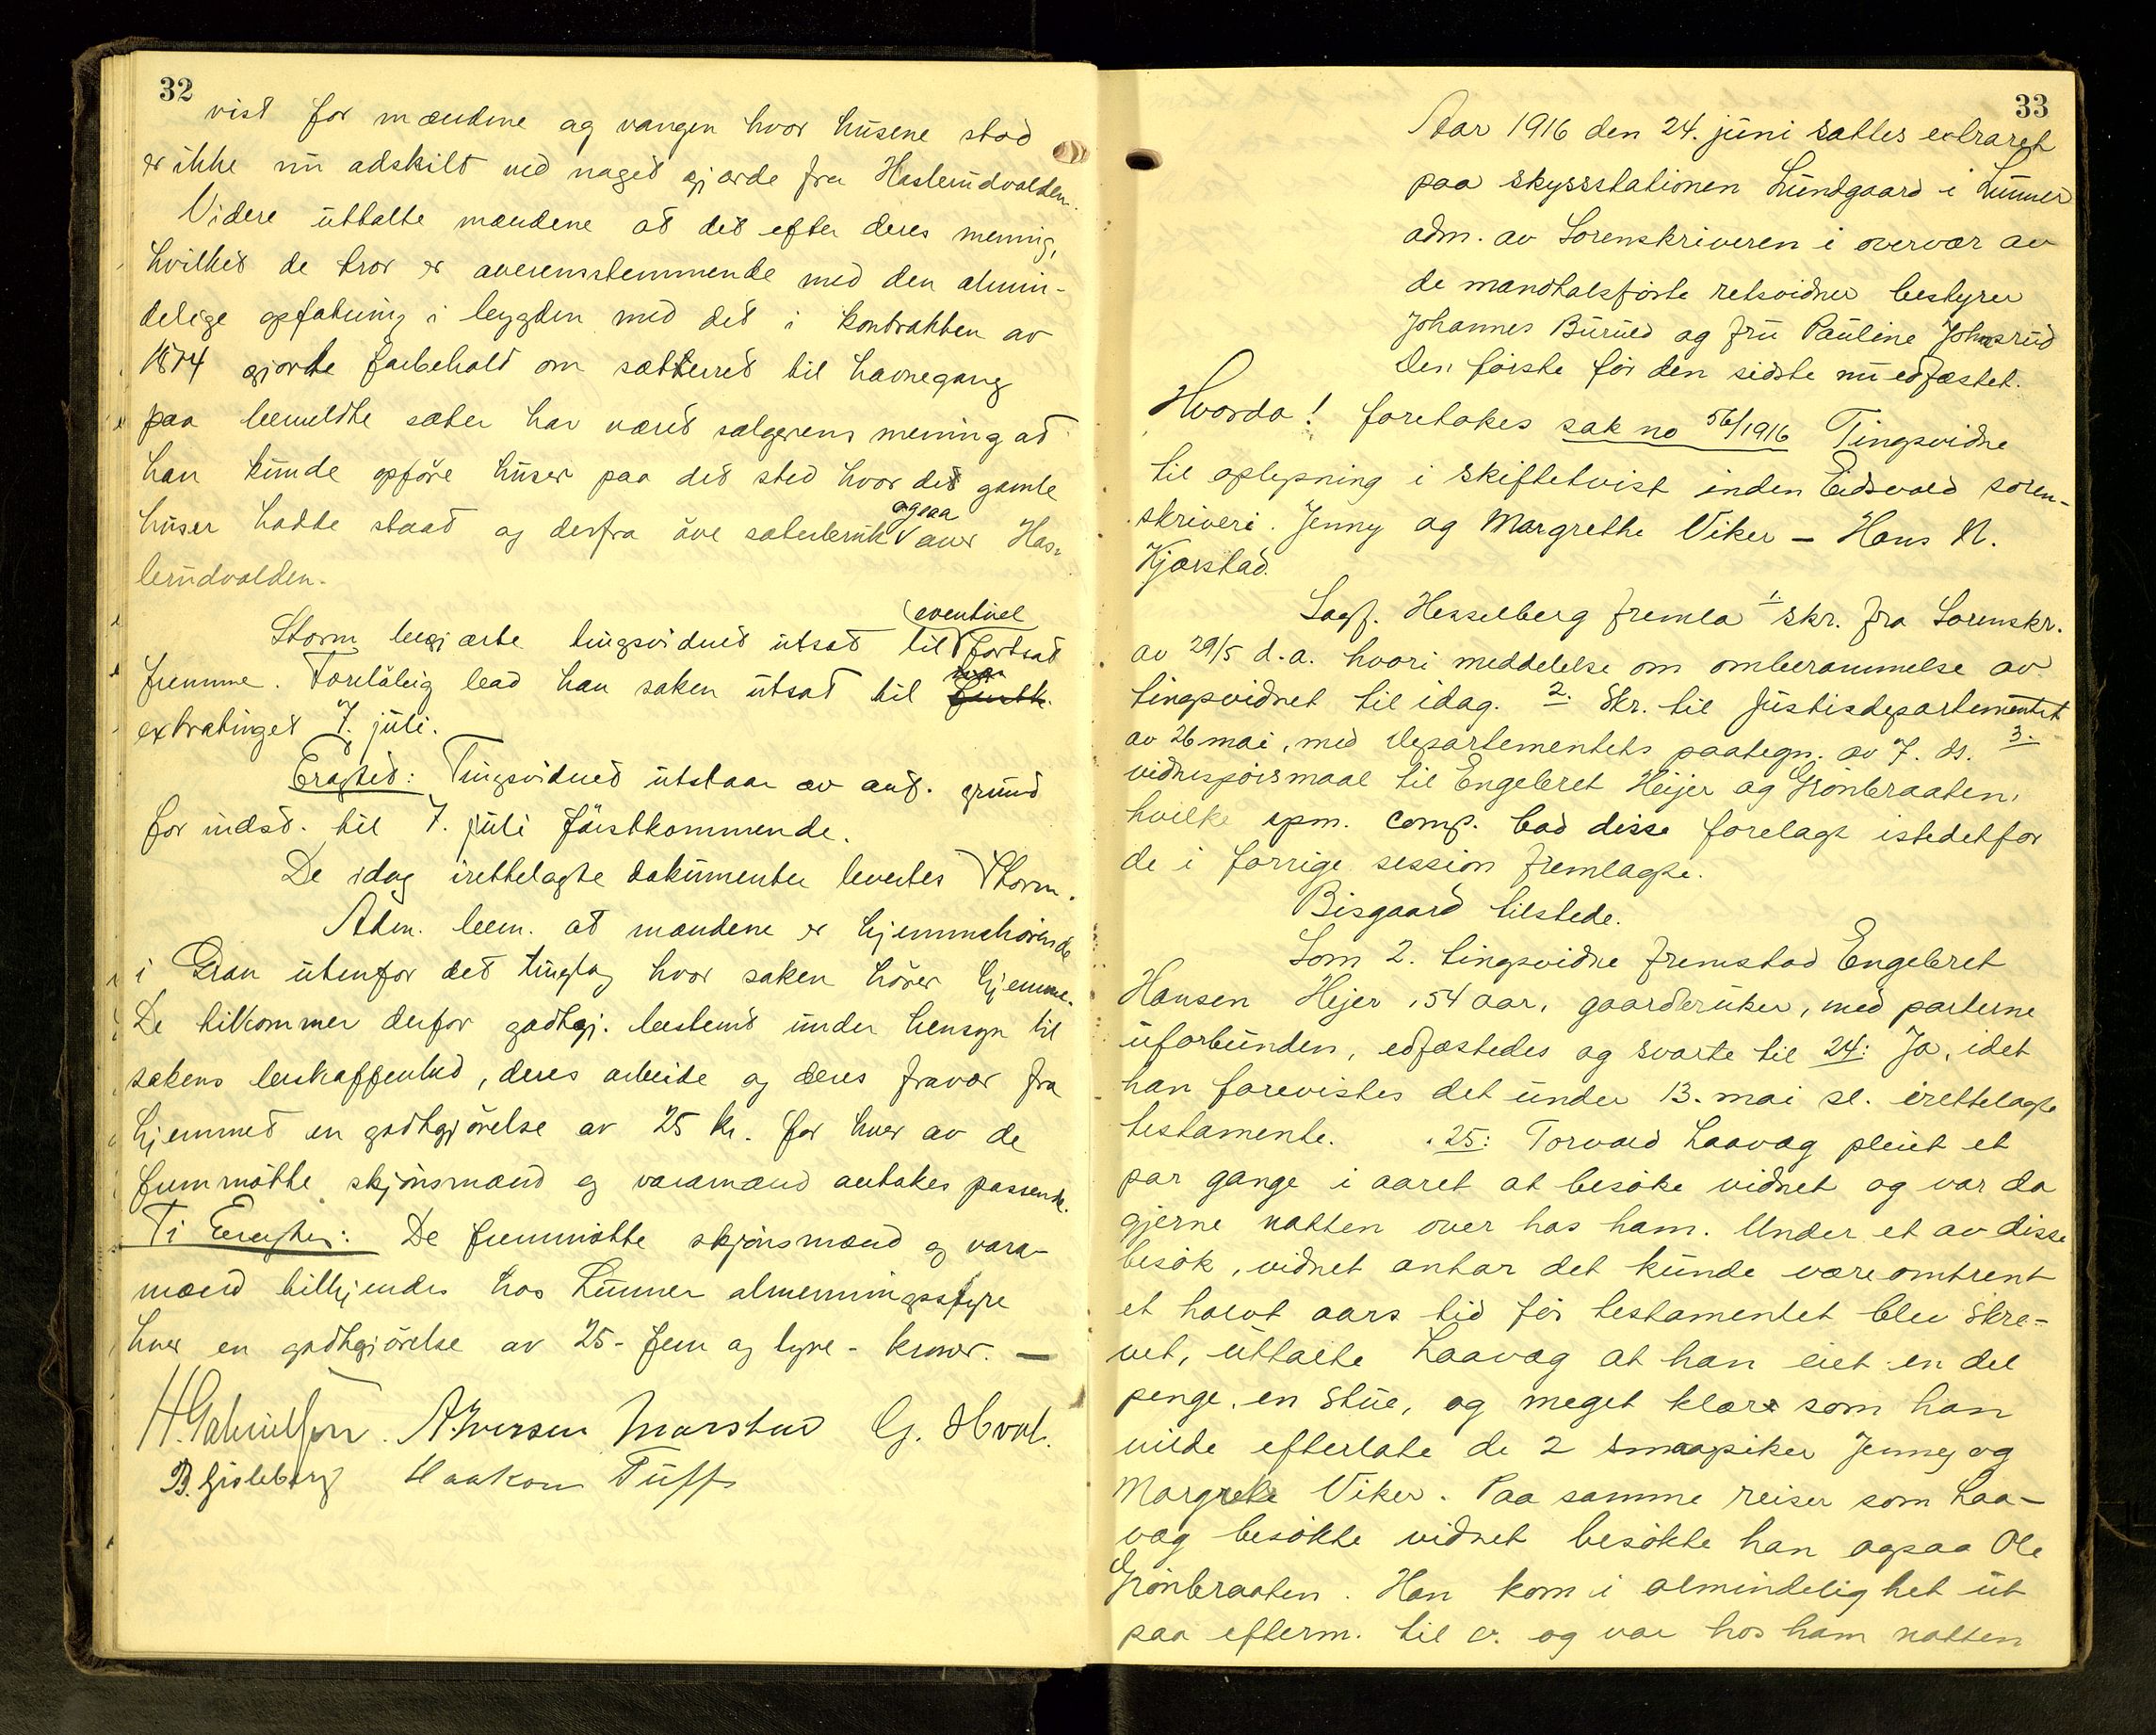 32
vist for mændene og vangen hvor husene stod
er ikke nu adskilt ved noget gjærde fra Haslerudvolden.
Videre uttalte mændene at det efter deres mening,
hvilket de tror er overensstemmende med den almin-
delige opfatning i bygden med det i kontrakten av
1874 gjorte forbehold om sætterret til havnegang
paa bemeldte sæter har været sælgerens mening at
han kunde opføre huser paa det sted hvor det gamle
huser hadde staat og derfra øve sæterbruk ogsaa over Has-
lerudvolden.
Storm begjærte tingsvidnet utsat til eventuel fortsat
fremme. Foreløbig bad han saken utsat til
extratinget 7. juli.
Eragtet: Tingsvidnet utstaar av anf. grund
for indst. til 7. juli førstkommende.
De idag irettelagte dokumenter levertes Storm.
Adm. bem. at mændene er hjemmehørende
i Gran utenfor det tinglag hvor saken hører hjemme.
De tilkommer derfor godtgj. bestemt under hensyn til
sakens beskaffenhed, deres arbeide og deres fravær fra
hjemmet en godtgjörelse av 25 kr. for hver av de
fremmøtte skjönsmænd og varamænd antakes passende.
Ti Eragtes: De fremmøtte skjønsmænd og vara-
mænd tilkjendes hos Lunner almenningsstyre
hver en godtgjörelse av 25 - fem og tyve - kroner. —
H. Gabrielsen. A. Iversen Morstad G. Hval.
B. Gisleberg Haakon Tuff
33
Aar 1916 den 24. juni sattes extraret
paa skysstationen Lundgaard i Lunner
adm. av Sorenskriveren i overvær av
de mandtalsførte retsvidner bestyrer
Johannes Burud og fru Pauline Johnsrud
Den første før den sidste nu edfæstet.
Hvorda! foretokes sak no 56/1916 Tingsvidne
til oplysning i skiftetvist inden Eidsvold soren-
skriveri. Jenny og Margrethe Viker – Hans N.
Kjørstad.
Sagf. Hesselberg fremla 1. skr. fra Sorenskr.
av 29/5 d.a. hvori meddelelse om omberammelse av
tingsvidnet til idag. 2. Skr. til Justisdepartementet
av 26 mai, med Departementets paategn. av 7. ds. 3.
vidnespörsmaal til Engebret Heijer og Grönbraaten,
hvilke spm. comp. bad disse forelagt istedetfor
de i forrige session fremlagte.
Bisgaard tilstede.
Som 2. tingsvidne fremstod Engebret
Hansen Hejer, 54 aar, gaardbruker, med parterne
uforbunden, edfæstedes og svarte til 24: Ja, idet
han forevistes det under 13. mai sl. irettelagte
testamente. 25: Torvald Laavag pleiet et
par gange i aaret at besöke vidnet og var da
gjerne natten over hos ham. Under et av disse
besök, vidnet antar det kunde være omtrent
et halvt aars tid för testamentet blev skre-
vet, uttalte Laavag at han eiet en del
penge, en stue, og meget klær som han
vilde efterlate de 2 smaapiker Jenny og
Margrete Viker. Paa samme reiser som Laa-
vag besökte vidnet besökte han ogsaa Ole
Grönbraaten. Han kom i almindelighet ut
paa efterm. til v. og var hos ham natten